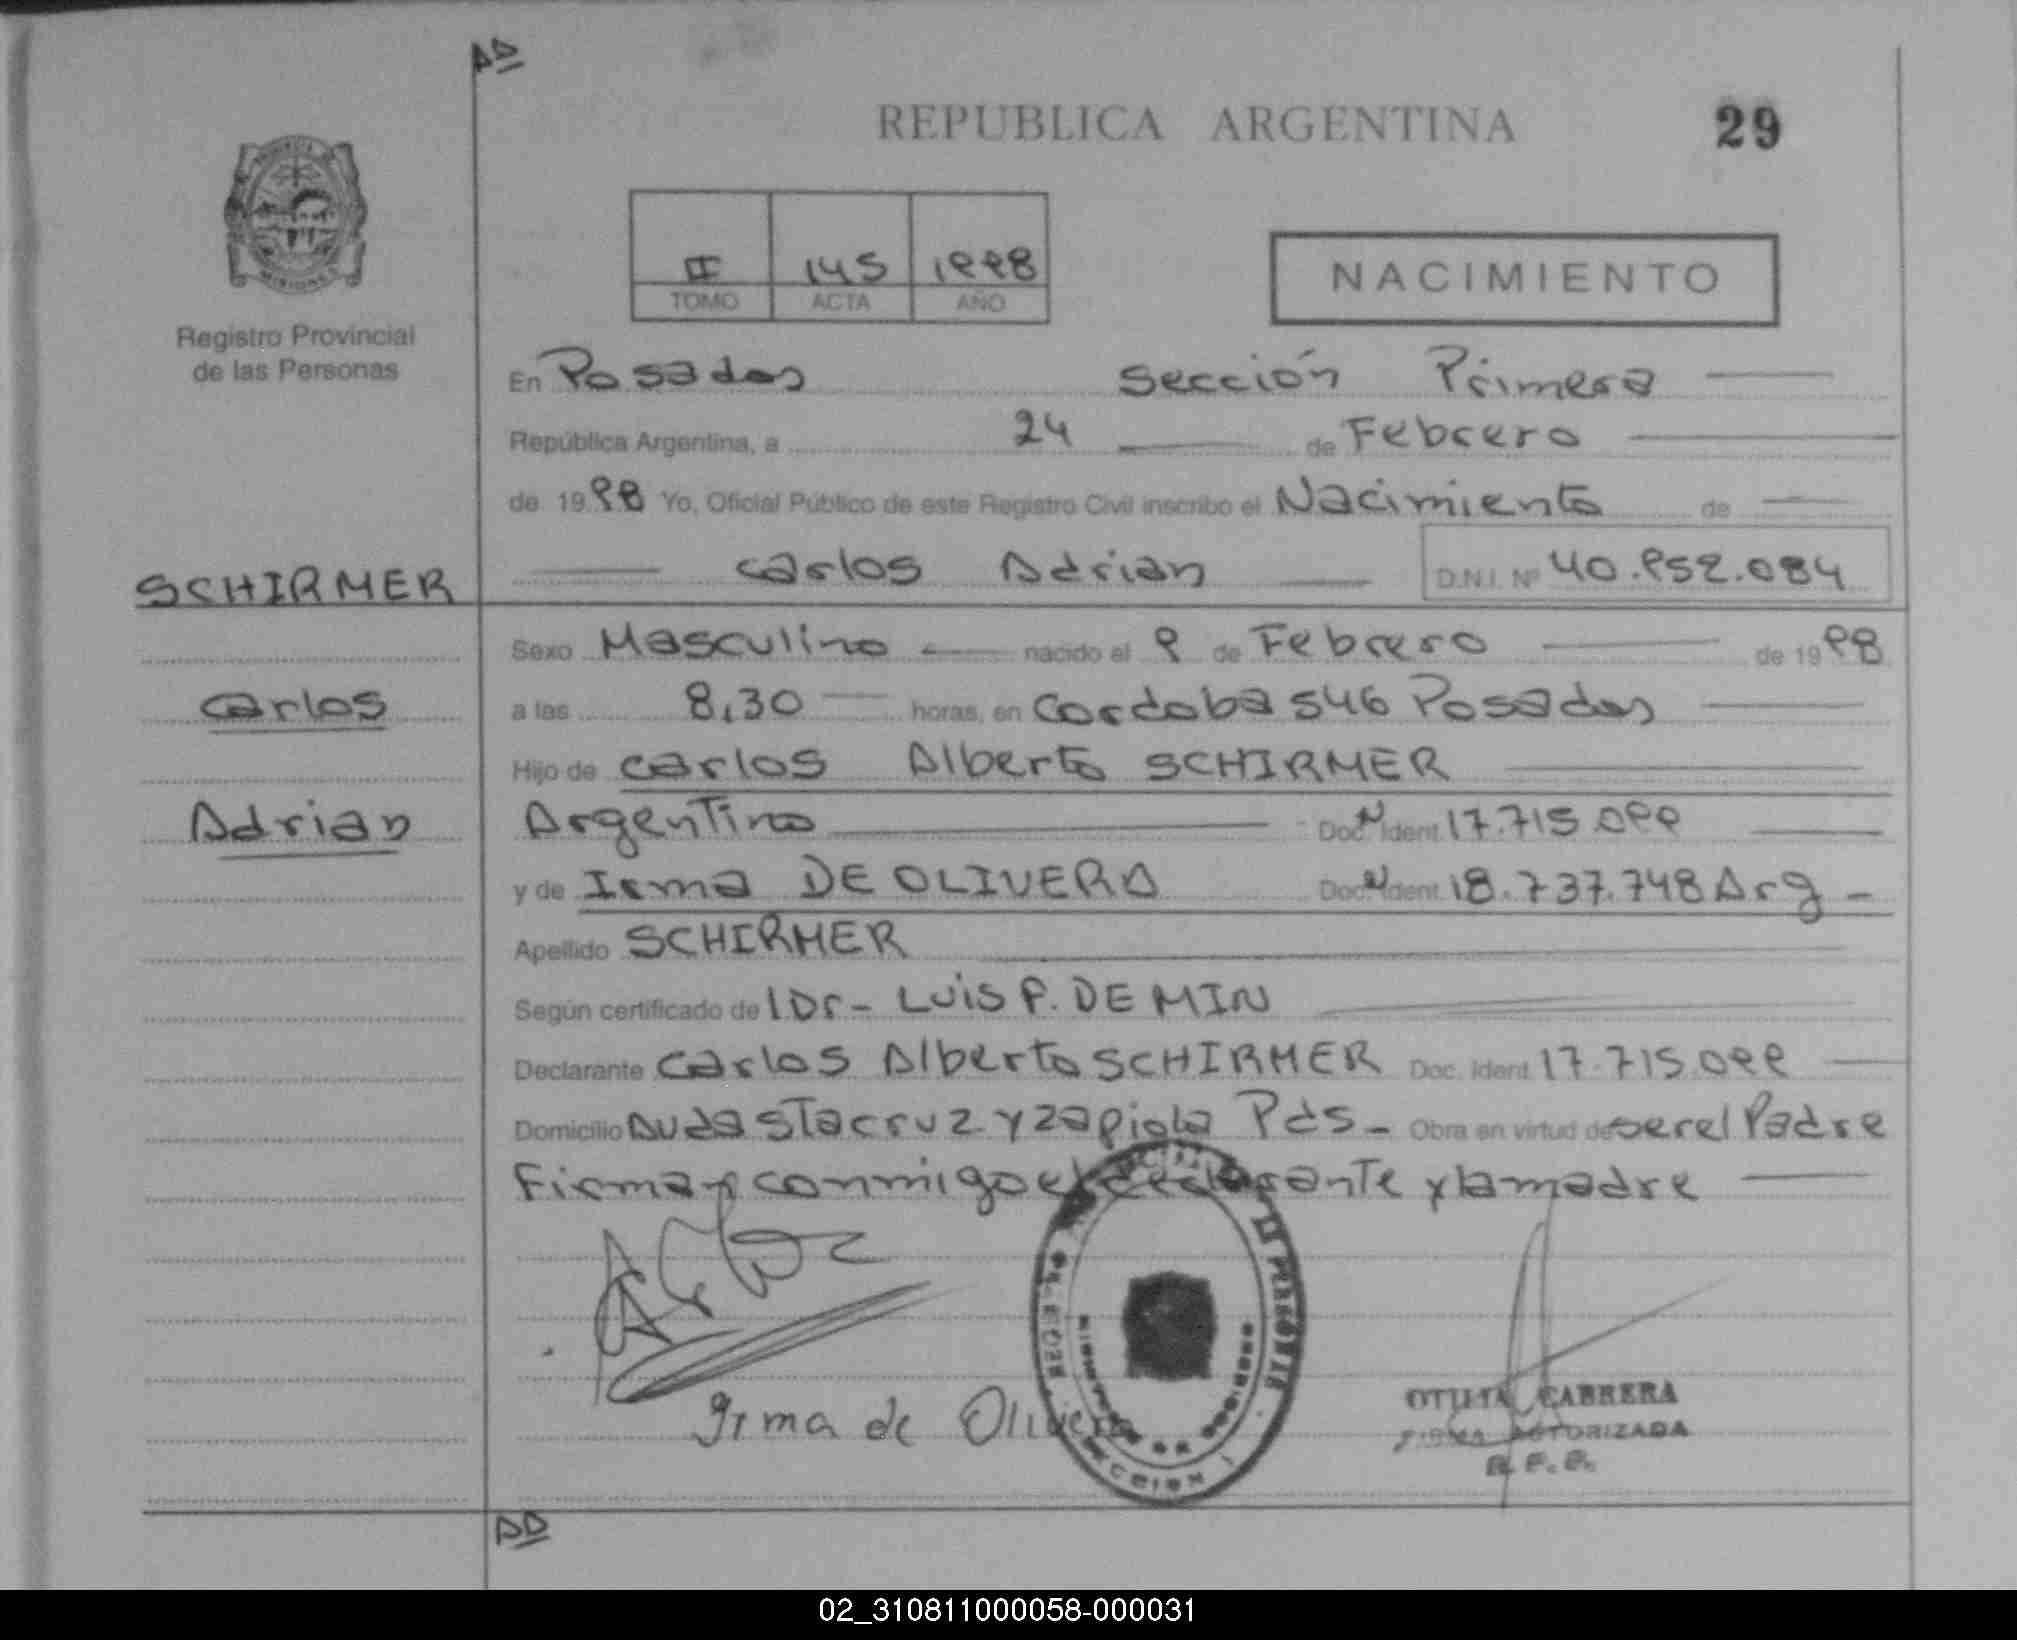 AD
REPUBLICA ARGENTINA 29
II 145 1998
TOMO ACTA AÑO
NACIMIENTO
Registro Provincial
de las Personas
En Posadas Sección Primera
República Argentina, a 24 de Febrero
de 1998 Yo, Oficial Público de este Registro Civil inscribo el Nacimiento de
SCHIRMER
Carlos Adrian D.N.I. Nº 40.952.084
Sexo Masculino nacido el 9 de Febrero de 1998
Carlos
a las 8,30 horas, en Cordoba 546 Posadas
Hijo de Carlos Alberto SCHIRMER
Adrian
Argentino Doc. Ident. 17.715.099
y de Irma DE OLIVERA Doc. Ident. 18.737.748 Arg -
Apellido SCHIRMER
Según certificado de l Dr - LUIS P. DE MIN
Declarante Carlos Alberto SCHIRMER Doc. Ident. 17.715.099
Domicilio Avda Sta cruz y zapiola Pds - Obra en virtud de ser el Padre
Firman conmigo el declarante y la madre
Irma de Olivera
OTILIA CABRERA
FIRMA AUTORIZADA
R. P. P.
SECCION 1
AD
02_310811000058-000031